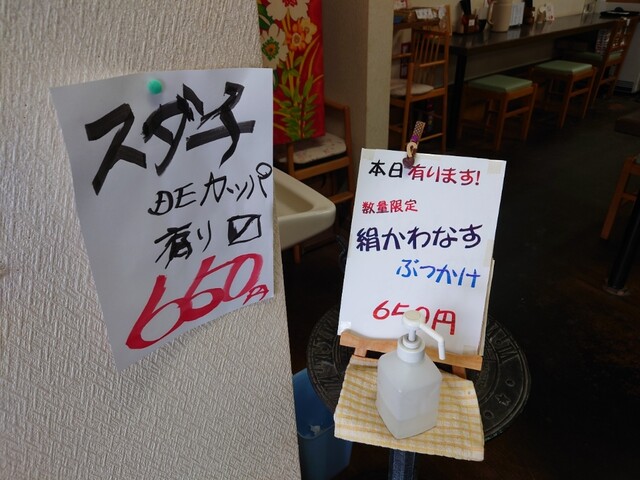 スダチ
DE カッパ
有り
660円
本日有ります!
数量限定
絹かわなす
ぶっかけ
650円